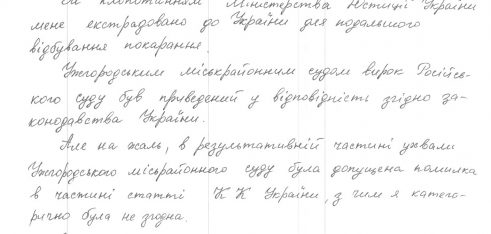 За клопотанням Міністерства Юстиції України
мене екстрадовано до України для подальшого
відбування покарання.
Ужгородським міськрайонним судом вирок Російсь-
кого суду був приведений у відповідність згідно за-
конодавства України.
Але на жаль, в результативній частині ухвали
Ужгородського місьрайонного суду була допущена помилка
в частині статті КК України, з чим я катего-
рично була не згодна.